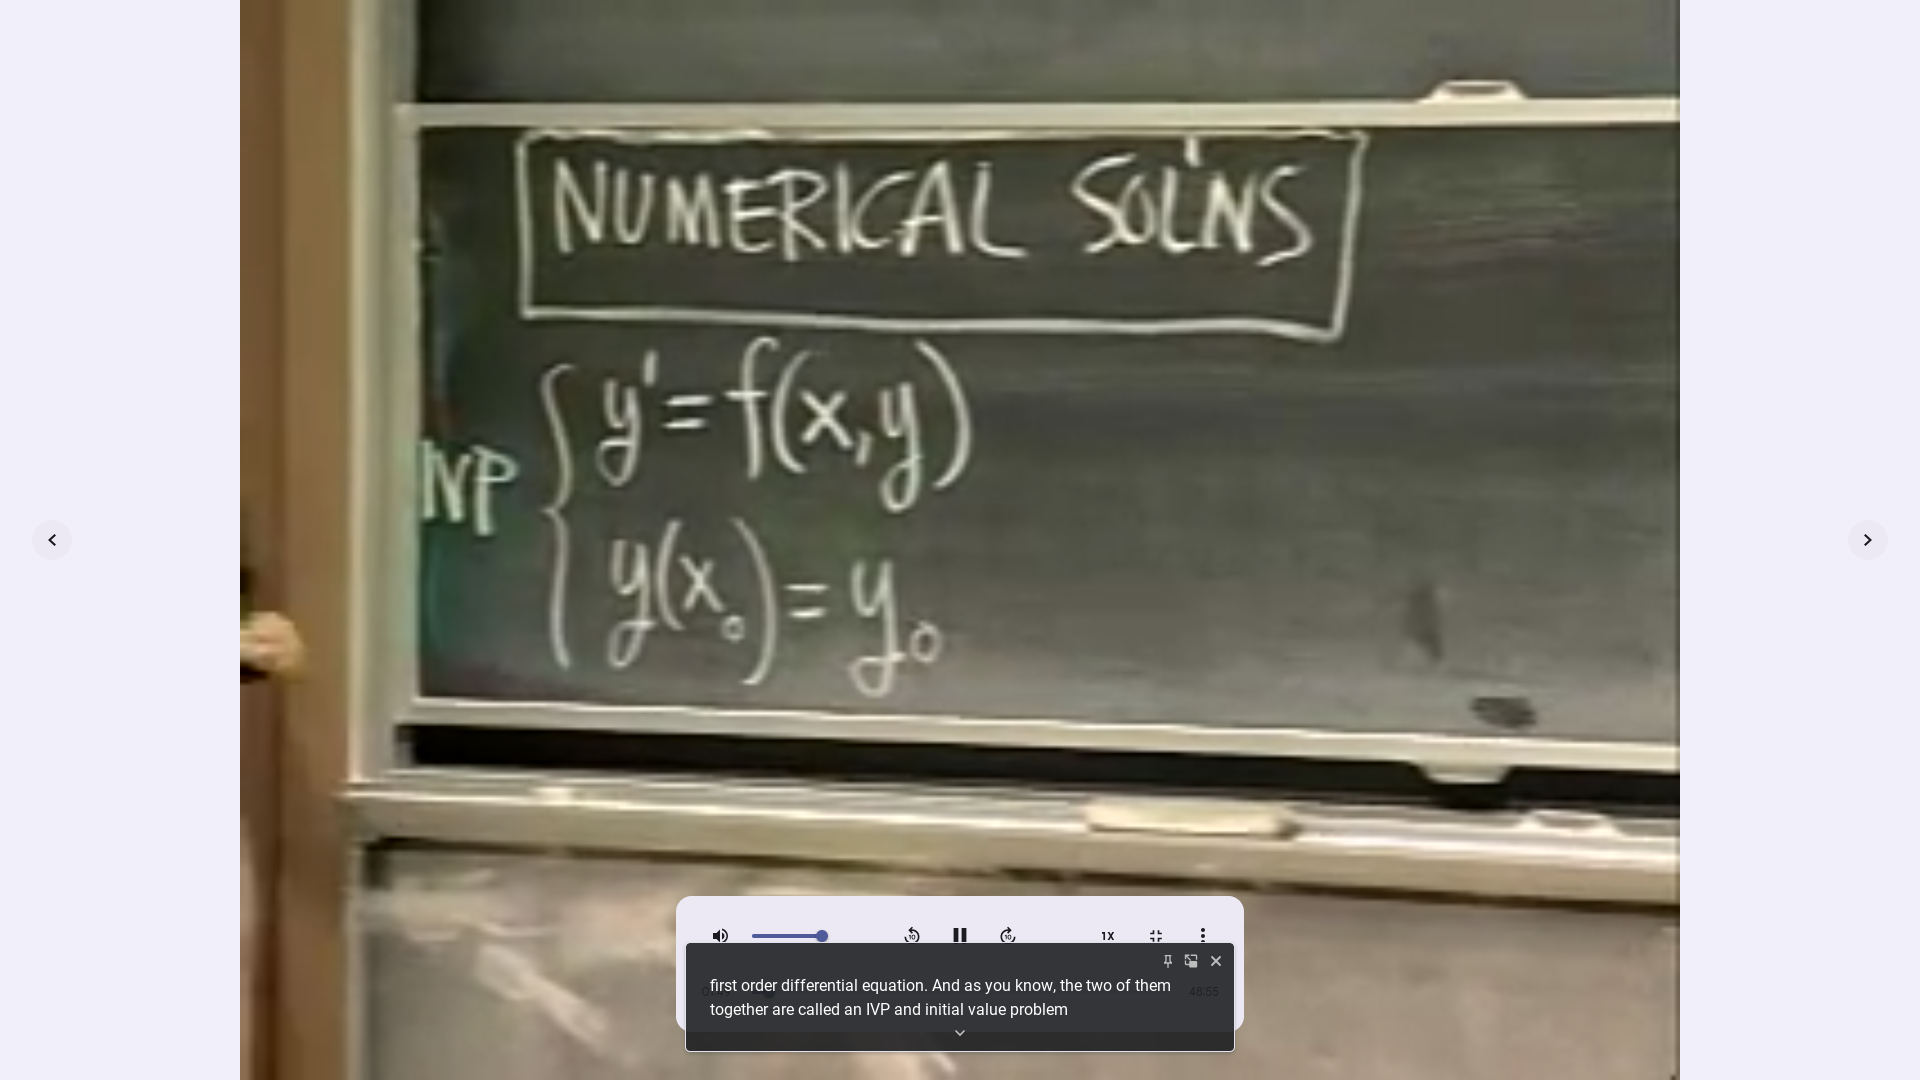 NUMERICAL SOL'NS
y' = f(x,y)
IVP
y(x₀) = y₀
1X
first order differential equation. And as you know, the two of them
together are called an IVP and initial value problem
48:55